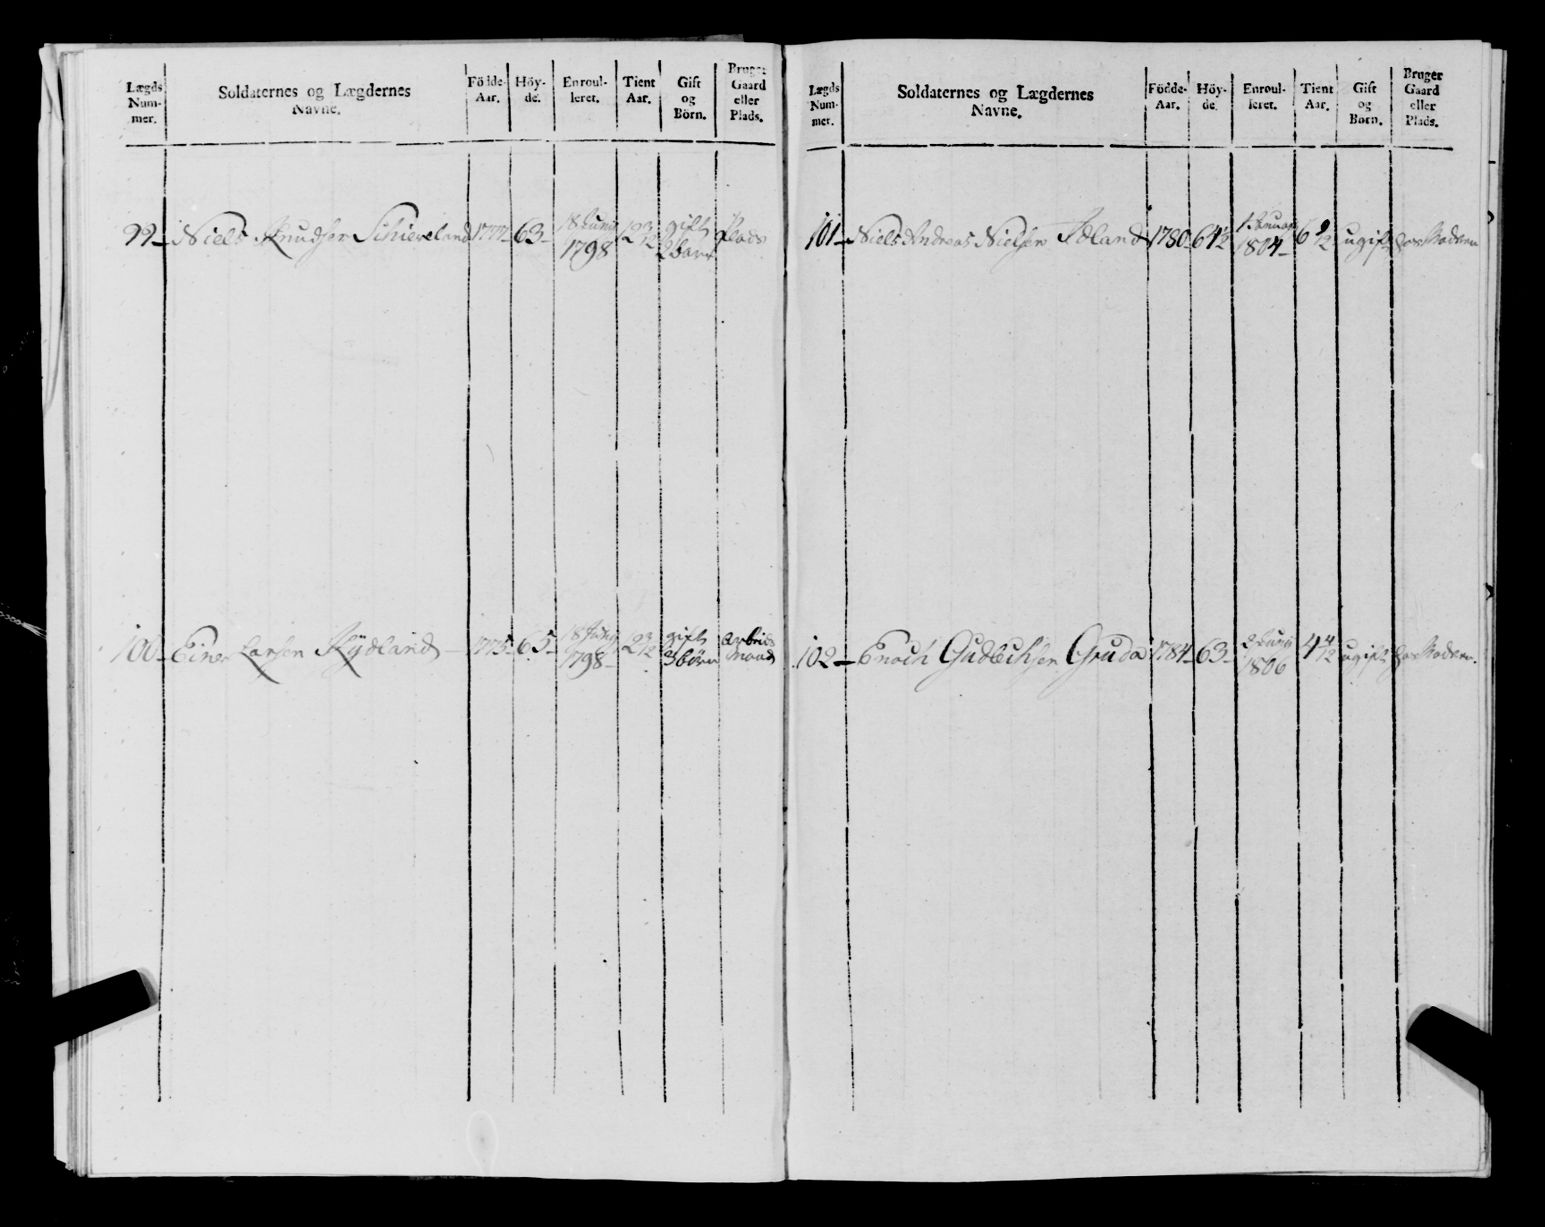 Lægds Num- mer.
Soldaternes og Lægdernes Navne.
Födde- Aar.
Höy- de.
Enroul- leret.
Tient Aar.
Gift og Börn.
Bruger Gaard eller Plads.
99 Niels Knudsen Schieveland 1777 63 18 Juny 1798 12 3/12 gift 2 barn Plads
100 Einer Larsen Rydland 1775 65 18 Juny 1798 12 3/12 gift 3 börn arbeids Mand
Lægds Num- mer.
Soldaternes og Lægdernes Navne.
Födde- Aar.
Höy- de.
Enroul- leret.
Tient Aar.
Gift og Børn.
Bruger Gaard eller Plads.
101 Niels Andreas Nielsen Föland 1780 64 1/2 1804 6 9/12 ugift
102 Enoch Gudbchsen Gruda 1784 63 1806 4 4/12 ugift